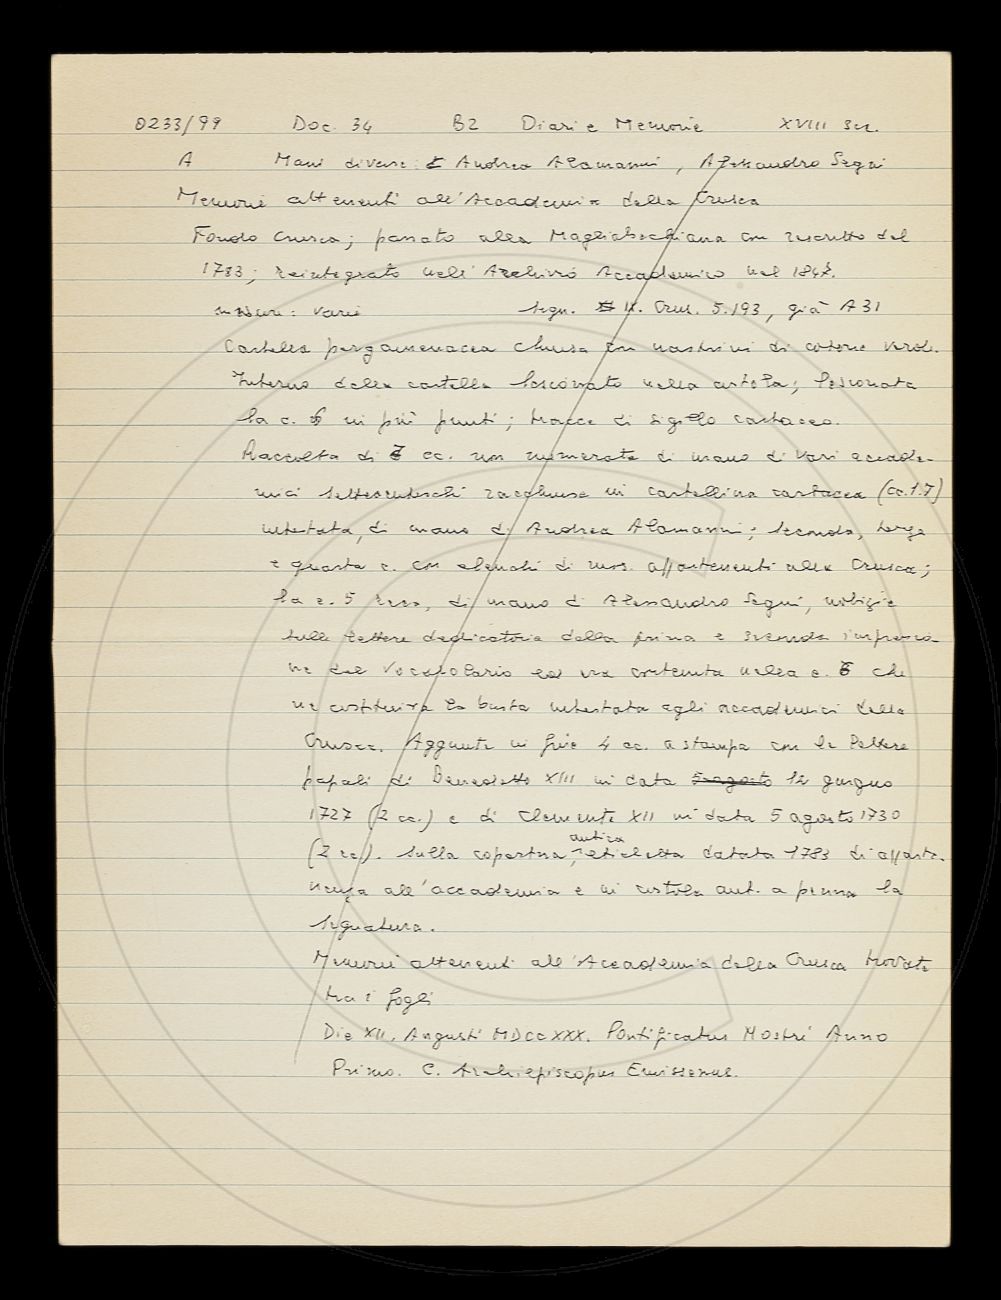 0233/99 Doc. 34 B2 Diari e Memorie XVIII sec.
A Mani diverse: Andrea Alamanni, Alessandro Segni
Memorie attenenti all'Accademia della Crusca
Fondo Crusca; passato alla Magliabechiana con rescritto del
1783; reintegrato nell'Archivio Accademico nel 184
misure: varie segn. II. Crus. 5.193, già A 31
Cartella pergamenacea chiusa con nastrini di cotone verde.
Interno della cartella lesionato nella costola; lesionata
la c. 6 in più punti; tracce di sigillo cartaceo.
Raccolta di 7 cc. non numerate di mano di vari accade-
mici settecenteschi racchiuse in cartellina cartacea (cc.1.7)
intestata, di mano di Andrea Alamanni; seconda, terza
e quarta c. con elenchi di mss. appartenenti alla Crusca;
la c. 5 reca, di mano di Alessandro Segni, notizie
sulle lettere dedicatorie della prima e seconda impressio
ne del Vocabolario ed era contenuta nella c. 6 che
ne costituiva la busta intestata agli accademici della
Crusca. Aggiunte in fine 4 cc. a stampa con le lettere
papali di Benedetto XIII in data 5 agosto 12 giugno
1727 (2 cc.) e di Clemente XII in data 5 agosto 1730
(2 cc.). Sulla copertina, antica etichetta datata 1783 di apparte-
nenza all'accademia e in costola aut. a penna la
segnatura.
Memorie attenenti all'Accademia della Crusca trovate
tra i fogli
Die XII. Augusti MDCCXXX. Pontificatus Nostri Anno
Primo. C. Archiepiscopus Emissenus.